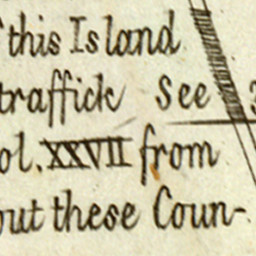 this Island
traffick See
ol. XXVII from
out these Coun-